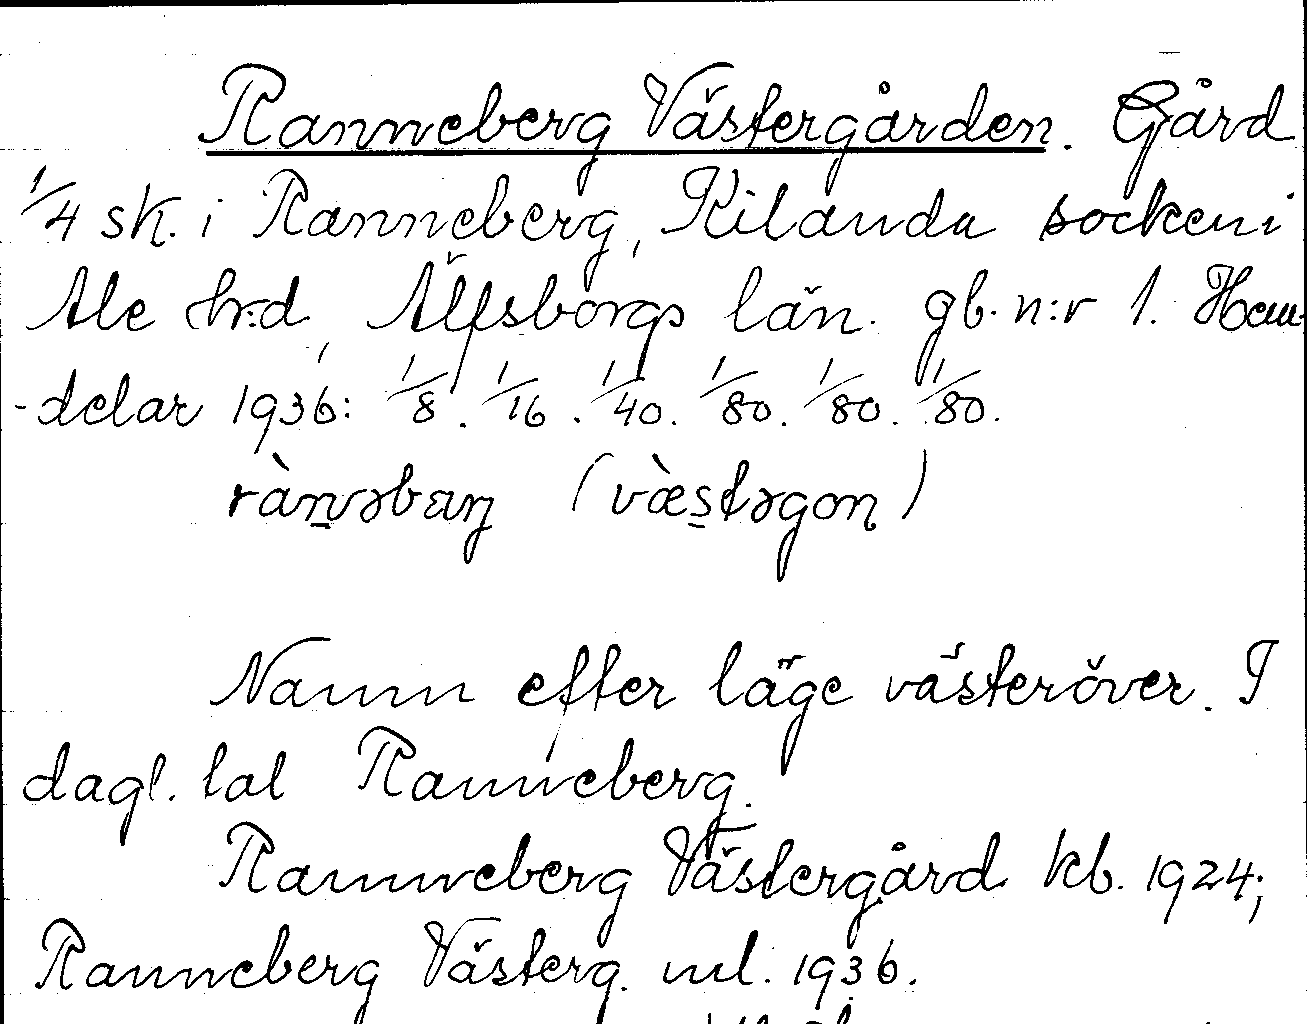 Ranneberg Västergården. Gård
1/4 sk. i Ranneberg, Kilanda socken i
Ale hrd, Älfsborgs län. gb. n:r 1. Hem-
-delar 1936: 1/8. 1/16. 1/40. 1/80. 1/80. 1/80.
rànəbærj (væ̀stəgon)
Namn efter läge västeröver. I
dagl. tal Ranneberg.
Ranneberg Västergård kb. 1924;
Ranneberg Västerg. ml. 1936.